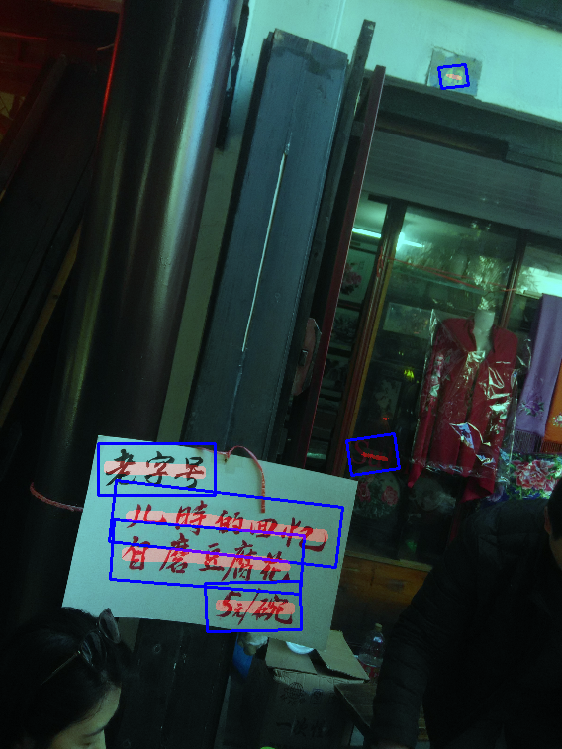 老字号
儿時的回忆
自磨豆腐花
5元/碗